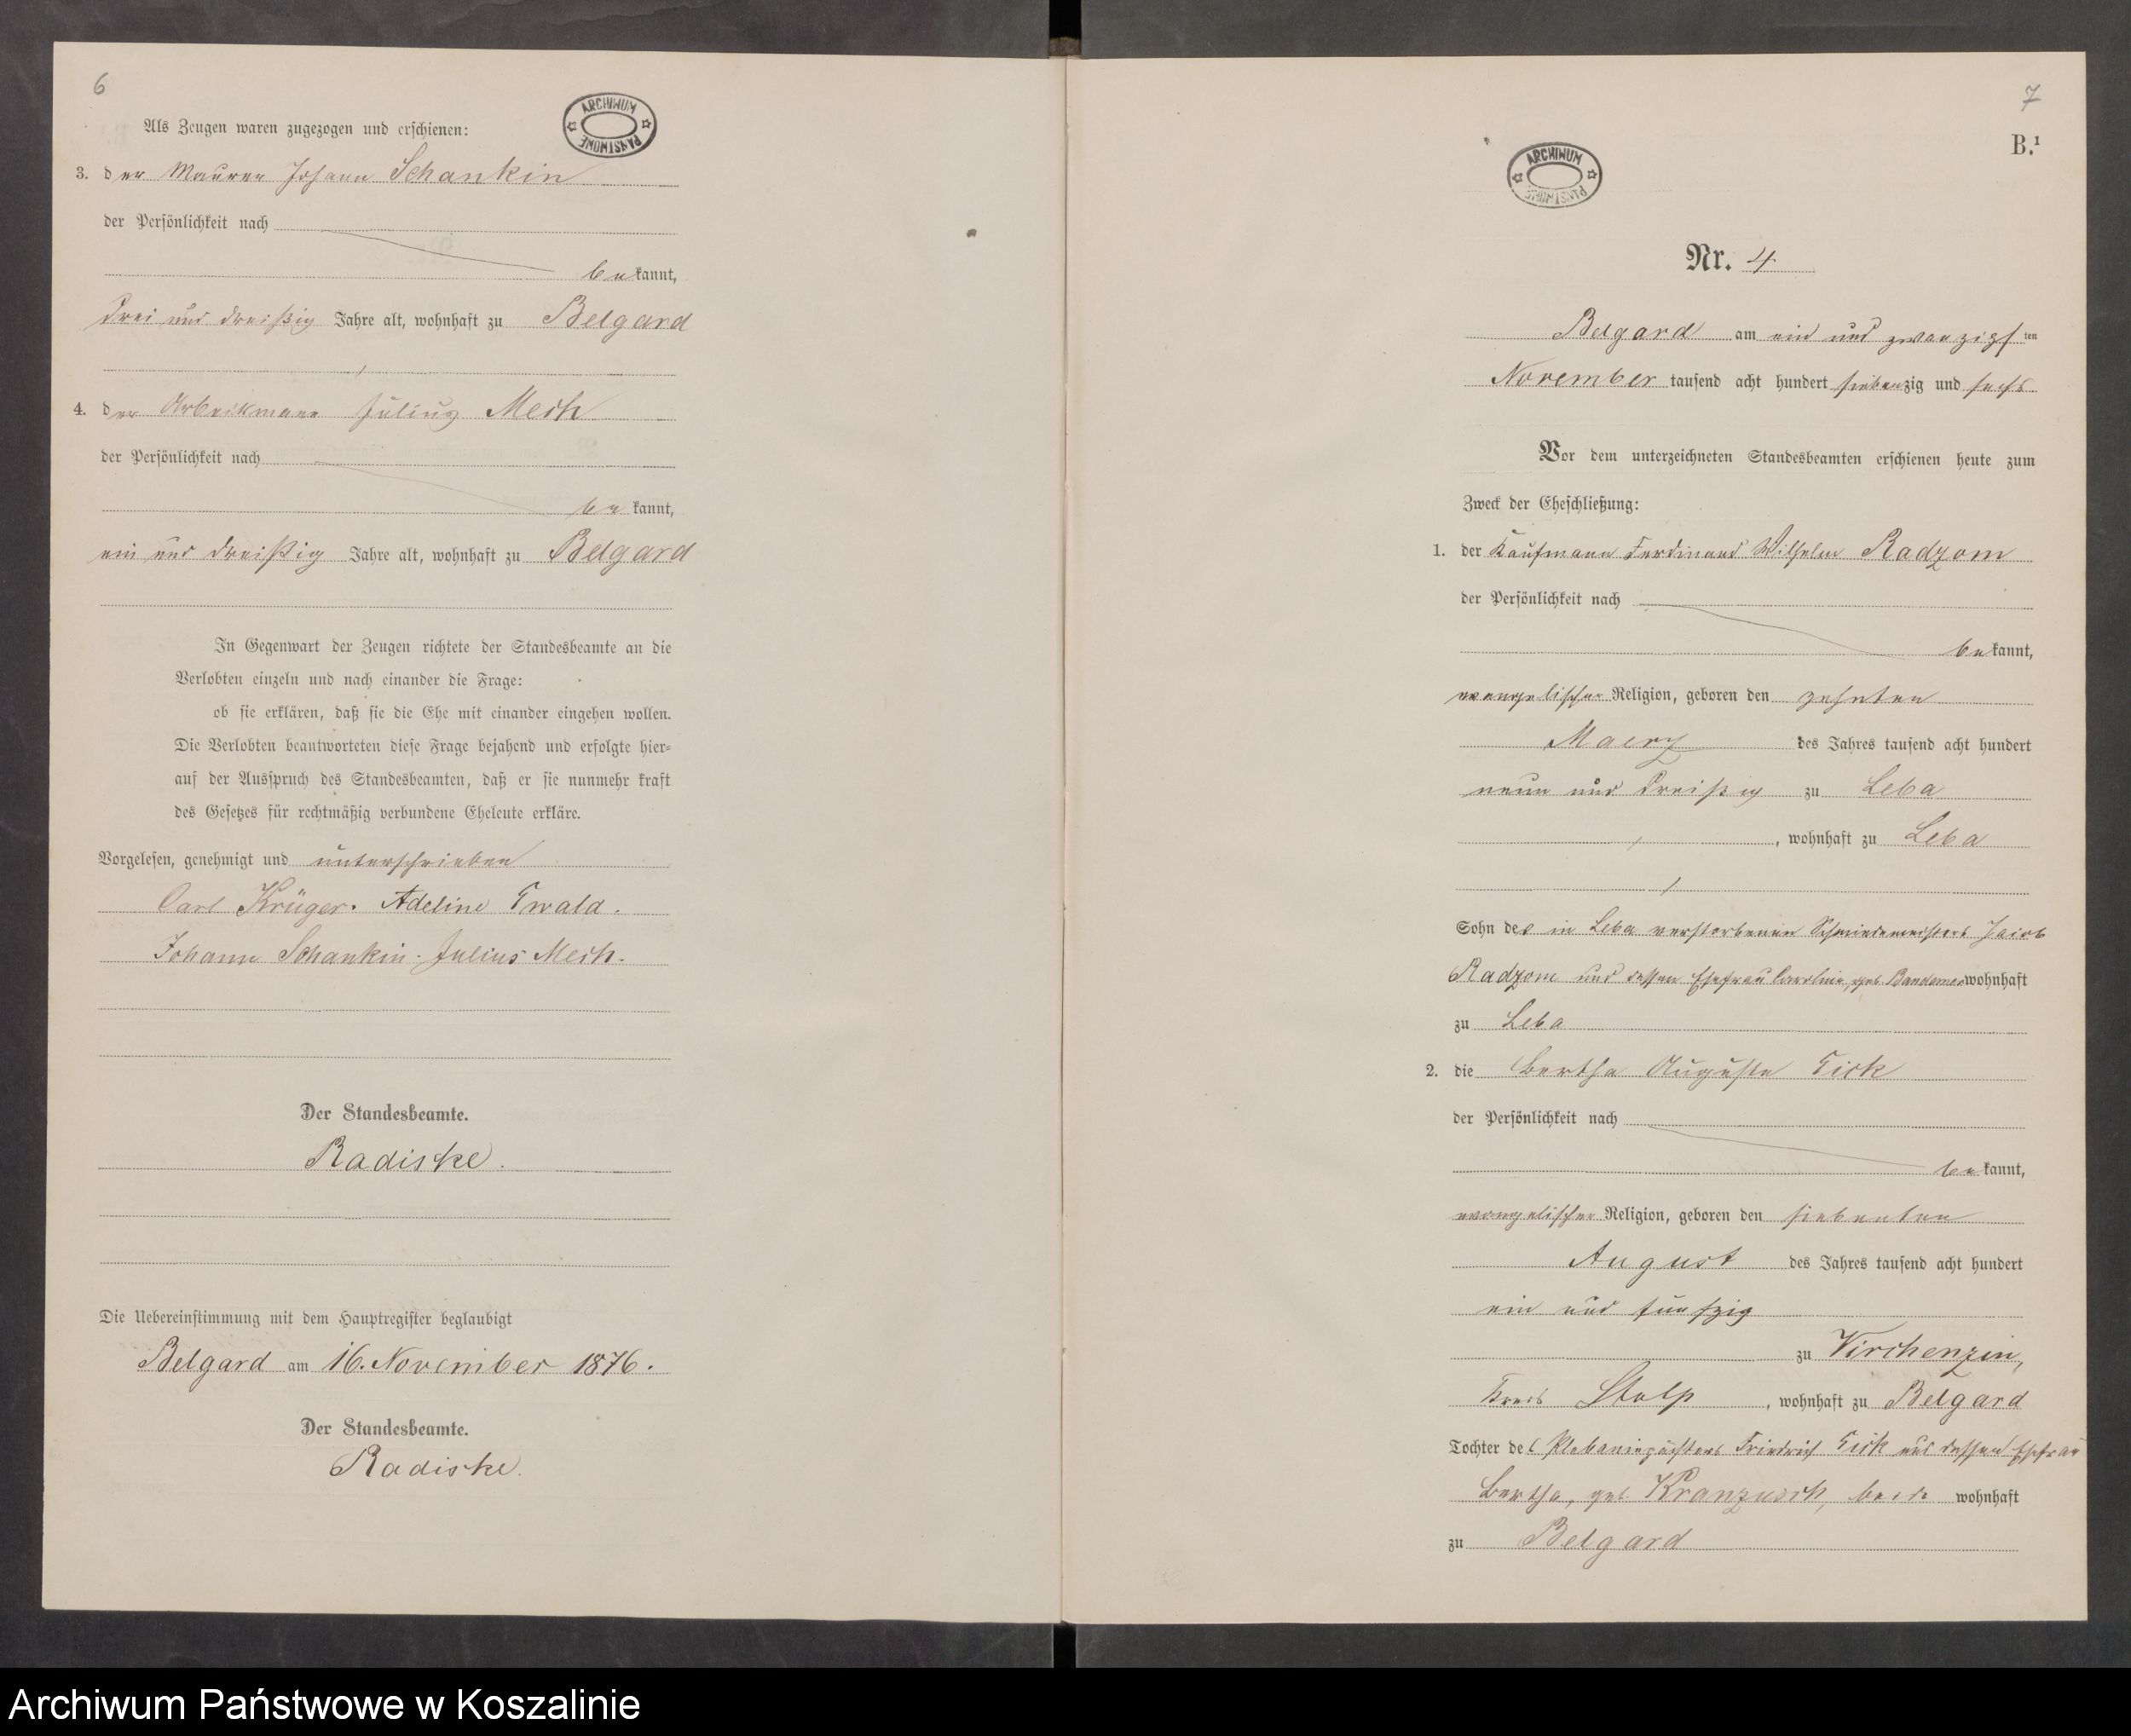 6
Als Zeugen waren zugezogen und erschienen:
ARCHIWUM
PAŃSTWOWE
3. der Maurer Johann Schankin
der Persönlichkeit nach
bekannt,
drei und dreißig Jahre alt, wohnhaft zu Belgard
4. der Arbeitmann Julius Mech
der Persönlichkeit nach
bekannt,
ein und dreißig Jahre alt, wohnhaft zu Belgard
In Gegenwart der Zeugen richtete der Standesbeamte an die
Verlobten einzeln und nach einander die Frage:
ob sie erklären, daß sie die Ehe mit einander eingehen wollen.
Die Verlobten beantworteten diese Frage bejahend und erfolgte hier=
auf der Ausspruch des Standesbeamten, daß er sie nunmehr kraft
des Gesetzes für rechtmäßig verbundene Eheleute erkläre.
Vorgelesen, genehmigt und unterschrieben
Carl Krüger. Adeline Ewald.
Johann Schankin. Julius Mech.
Der Standesbeamte.
Radiske.
Die Uebereinstimmung mit dem Hauptregister beglaubigt
Belgard am 16. November 1876.
Der Standesbeamte.
Radiske.
7
B.¹
ARCHIWUM
PAŃSTWOWE
Nr. 4
Belgard am ein und zwanzigsten
November tausend acht hundert siebenzig und sechs
Vor dem unterzeichneten Standesbeamten erschienen heute zum
Zweck der Eheschließung:
1. der Kaufmann Ferdinand Wilhelm Radzom
der Persönlichkeit nach
bekannt,
evangelischer Religion, geboren den zehnten
Maerz des Jahres tausend acht hundert
neun und dreißig zu Leba
, wohnhaft zu Leba
Sohn des in Leba verstorbenen Schmiedemeisters Jacob
Radzom und dessen Ehefrau Caroline, geb. Bandemer wohnhaft
zu Leba
2. die Bertha Auguste Tick
der Persönlichkeit nach
bekannt,
evangelischer Religion, geboren den siebenten
August des Jahres tausend acht hundert
ein und funfzig
zu Virchenzin,
Kreis Stolp, wohnhaft zu Belgard
Tochter des Friedrich Tick und dessen Ehefrau
Bertha, geb. Kranzusch, beide wohnhaft
zu Belgard
Archiwum Państwowe w Koszalinie